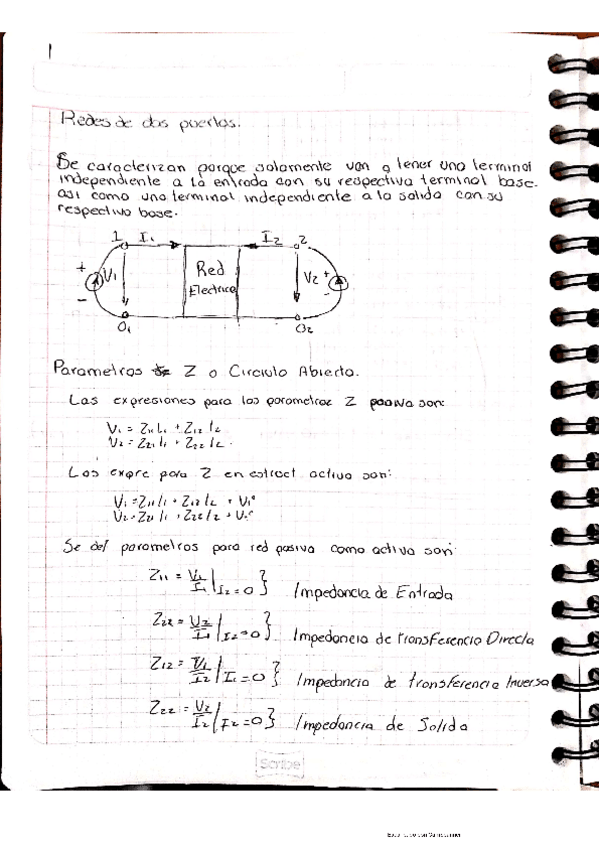 1
Redes de dos puertos.
Se caracterizan porque solamente van a tener una terminal
independiente a la entrada con su respectiva terminal base.
asi como una terminal independiente a la salida con su
respectivo base.
1 I₁ I₂ 2
+ V₁ Red V₂ +
- Electrica -
O₁ O₂
Parametros Z o Circuito Abierto.
Las expresiones para los parametros Z pasiva son:
V₁ = Z₁₁I₁ + Z₁₂I₂
V₂ = Z₂₁I₁ + Z₂₂I₂.
Las expre para Z en estruct activa son:
V₁ = Z₁₁I₁ + Z₁₂I₂ + V₁°
V₂ = Z₂₁I₁ + Z₂₂I₂ + V₂°
Se def parametros para red pasiva como activa son:
Z₁₁ = V₁/I₁ | I₂=0 } Impedancia de Entrada
Z₂₂ = V₂/I₁ | I₂=0 } Impedancia de transferencia Directa
Z₁₂ = V₁/I₂ | I₁=0 } Impedancia de transferencia Inversa
Z₂₂ = V₂/I₂ | I₂=0 } Impedancia de Salida
Scribe